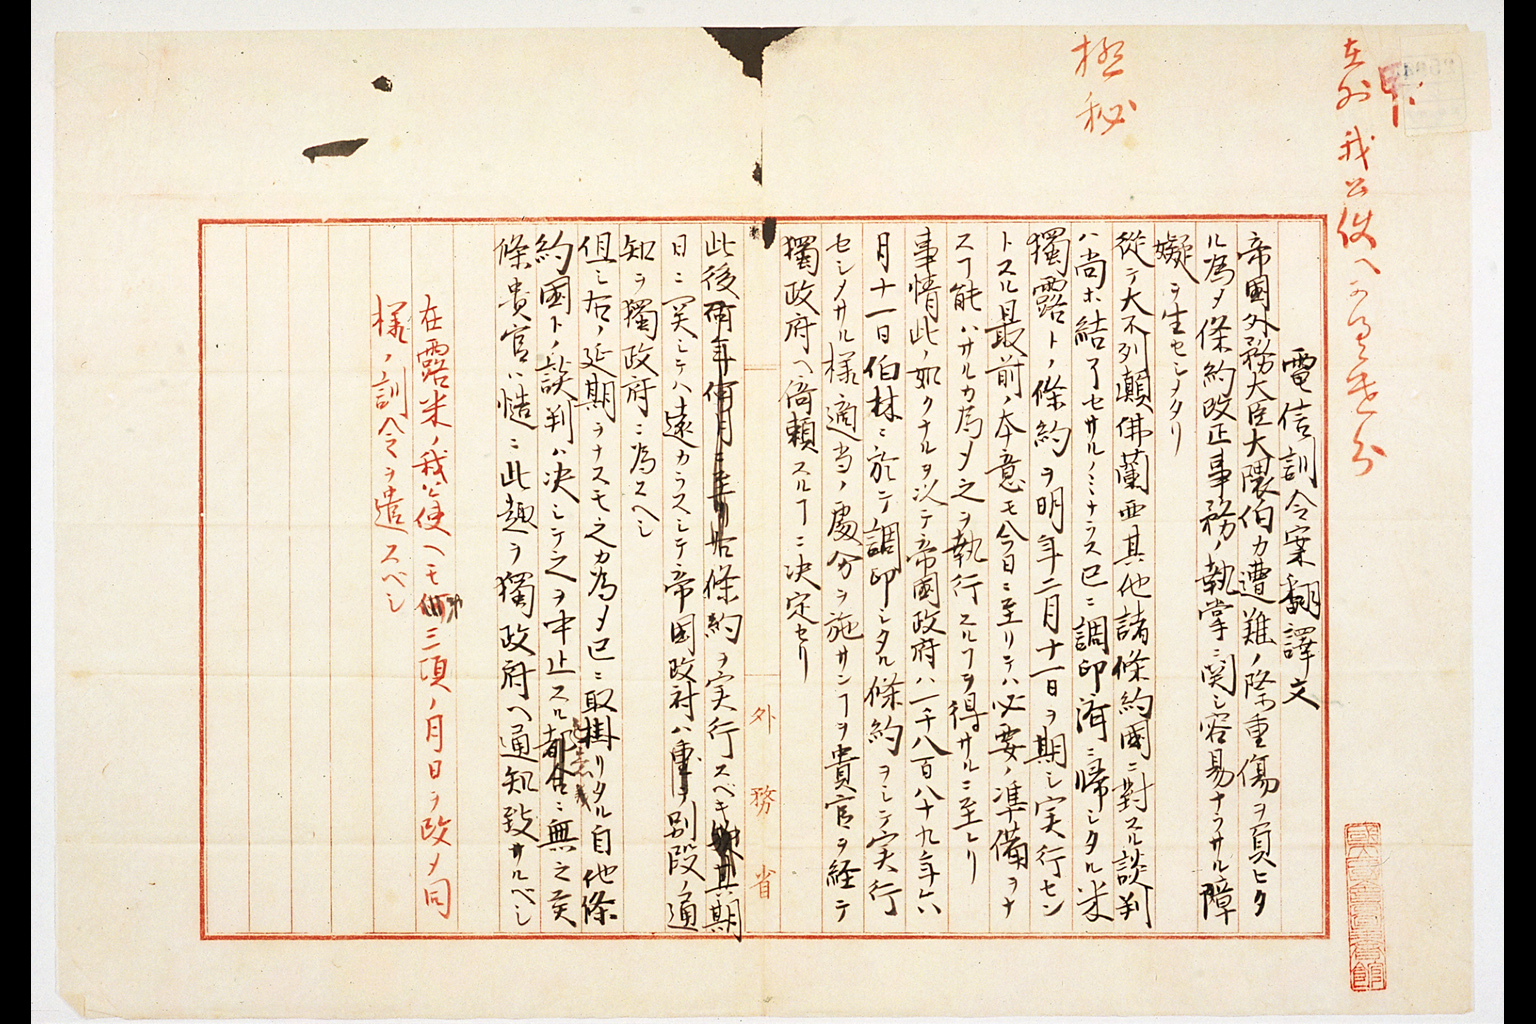 在外我公使へ
極秘
電信訓令案翻譯文
帝國外務大臣大隈伯カ遭難ノ際重傷ヲ負ヒタ
ル為メ條約改正事務ノ執掌ニ関シ容易ナラサル障
礙ヲ生セシメタリ
從テ大不列顛佛蘭西其他諸條約國ニ對スル談判
ハ尚ホ結了セサルノミナラス已ニ調印済ニ帰シタル米
獨露トノ條約ヲ明年二月十一日ヲ期シ実行セン
トスル最前ノ本意モ今日ニ至リテハ必要ノ準備ヲナ
スヿ能ハサルカ為メ之ヲ執行スルヿヲ得サルニ至レリ
事情此ノ如クナルヲ以テ帝國政府ハ一千八百八十九年六
月十一日伯林ニ於テ調印シタル條約ヲシテ実行
セシメサル様適当ノ處分ヲ施サンヿヲ貴官ヲ経テ
獨政府ヘ倚頼スルヿニ決定セリ
外務省
此後何年何月ニ至リ右條約ヲ実行スベキ其期
日ニ関シテハ遠カラスシテ帝国政府ハ別段ノ通
知ヲ獨政府ニ為スヘシ
但シ右ノ延期ヲナスモ之カ為メ已ニ取掛リタル自他條
約國トノ談判ハ決シテ之ヲ中止スル無之矣
條貴官ハ慥ニ此趣ヲ獨政府ヘ通知致サルベシ
在露米ノ我公使ヘモ三項ノ月日ヲ改メ同
様ノ訓令ヲ遣スベシ